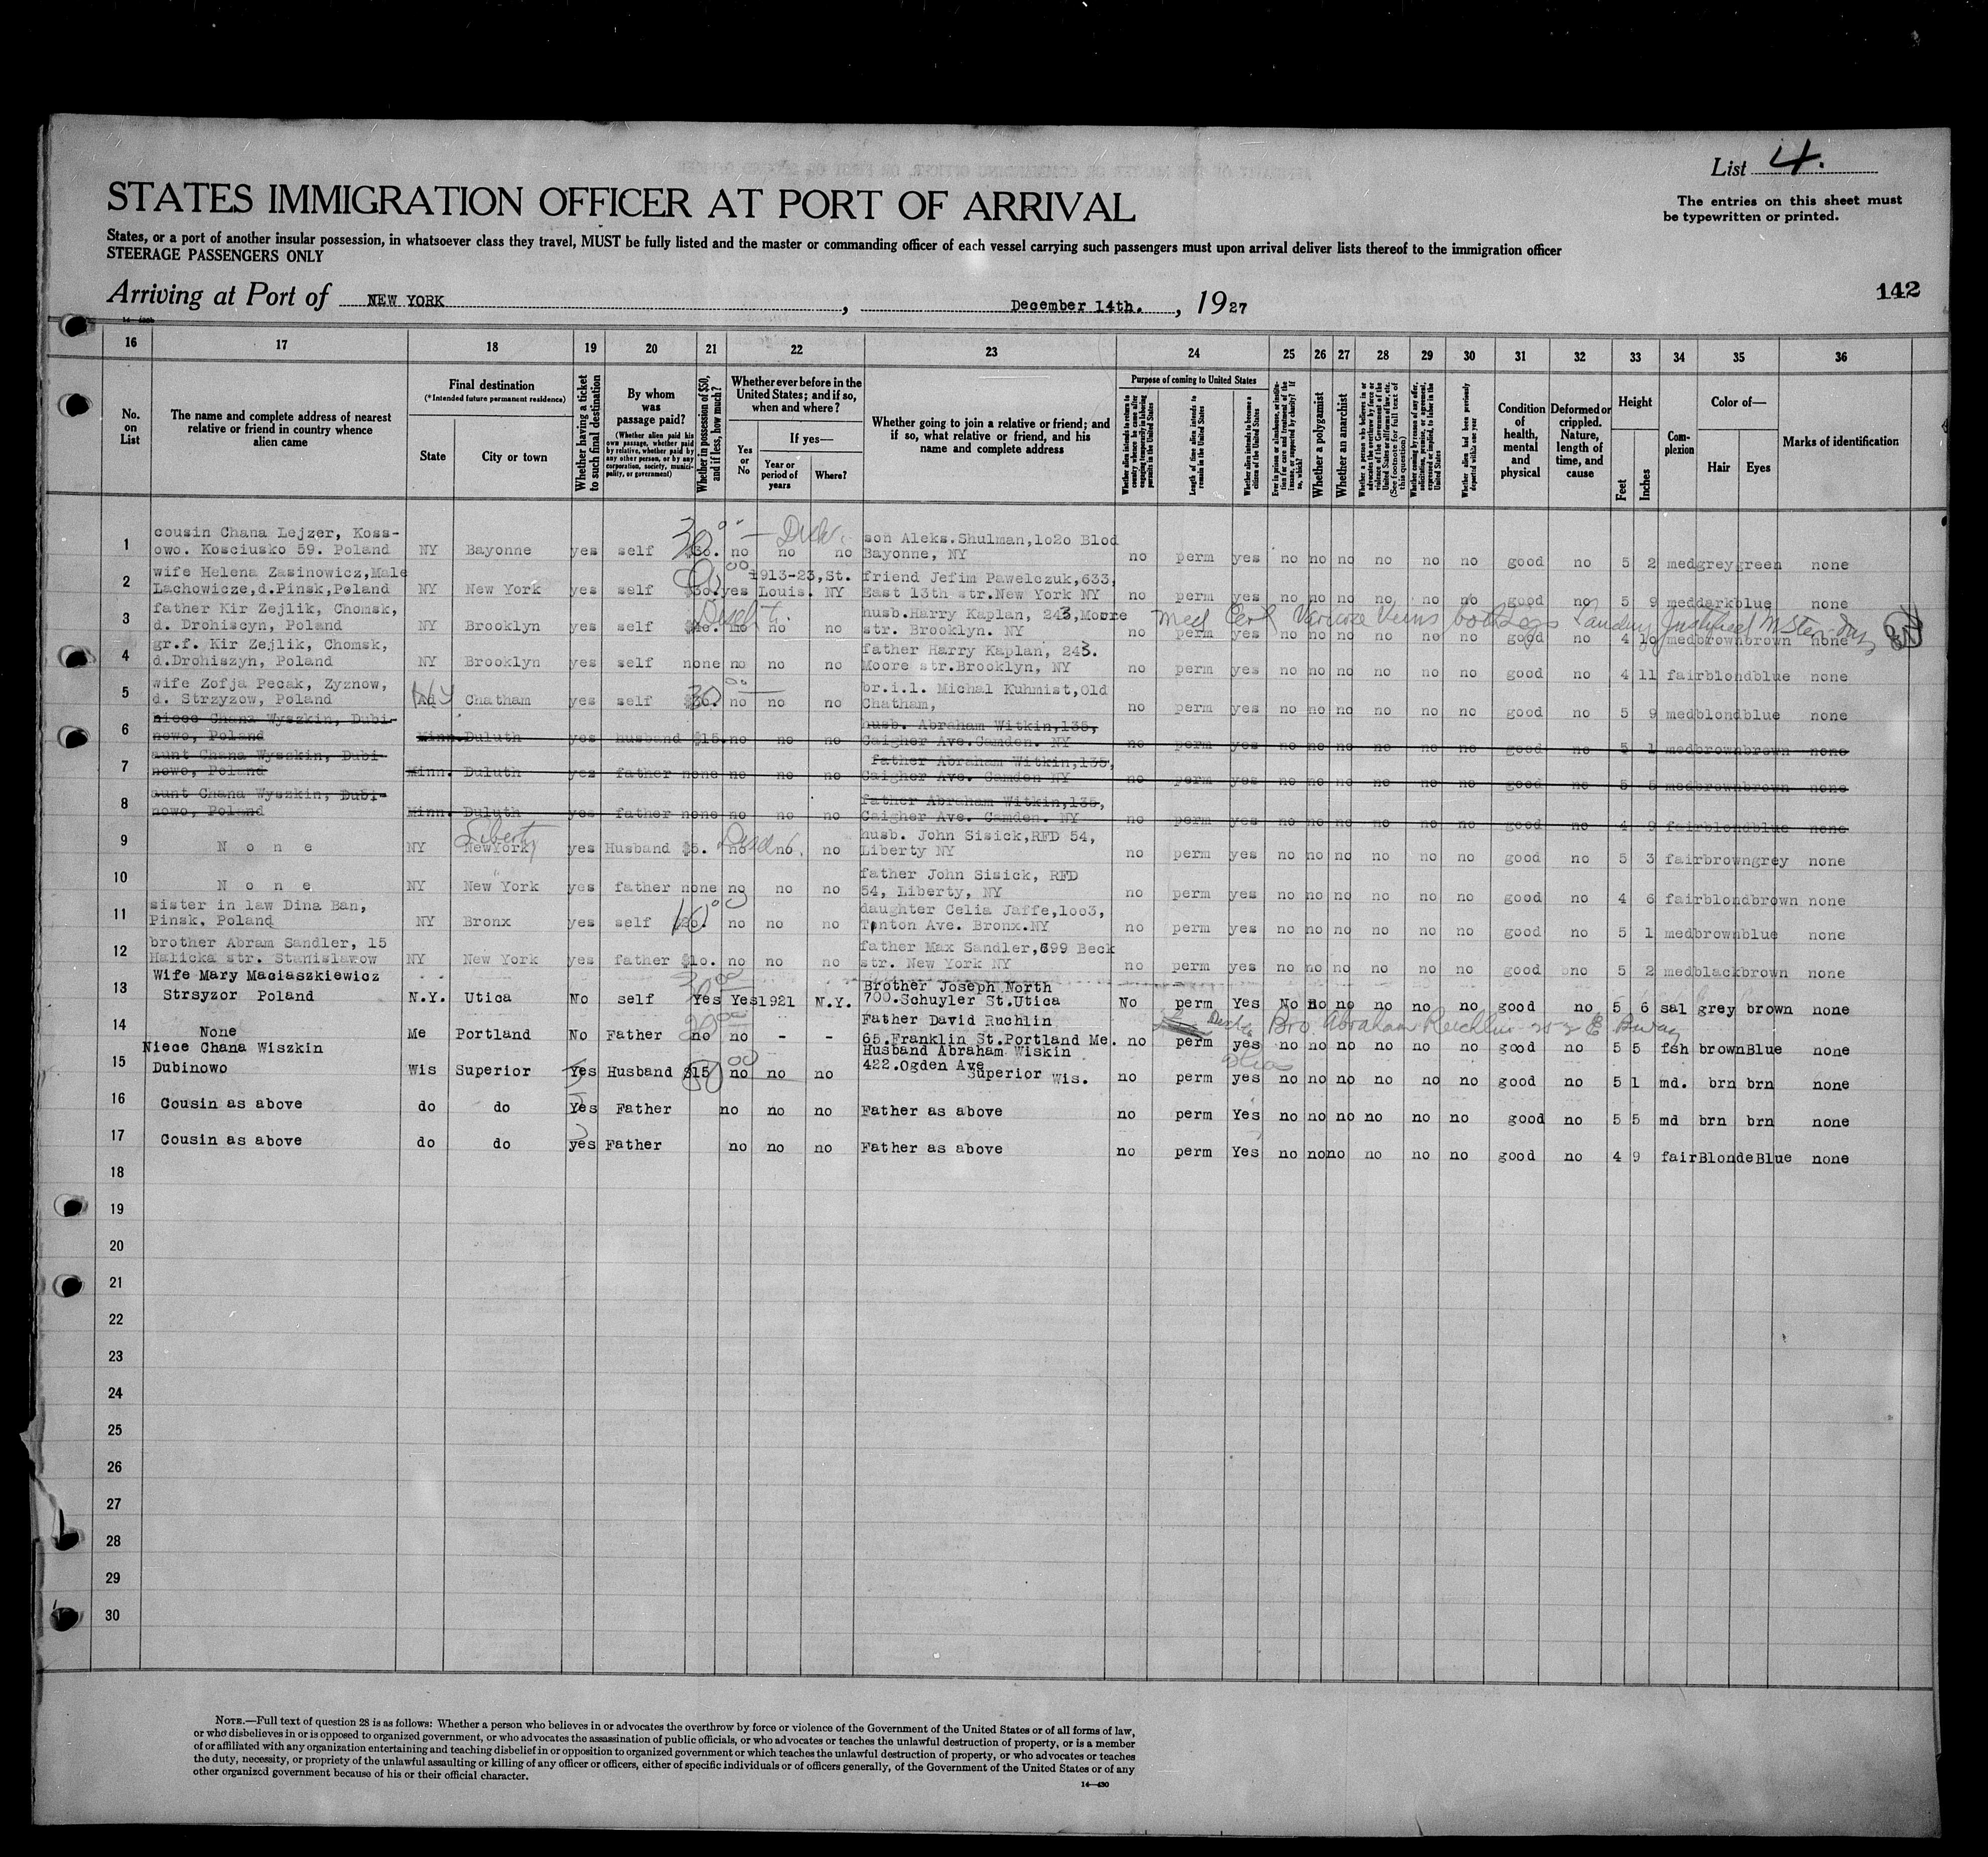 List 4.
The entries on this sheet must
be typewritten or printed.
STATES IMMIGRATION OFFICER AT PORT OF ARRIVAL
States, or a port of another insular possession, in whatsoever class they travel, MUST be fully listed and the master or commanding officer of each vessel carrying such passengers must upon arrival deliver lists thereof to the immigration officer
STEERAGE PASSENGERS ONLY
Arriving at Port of NEW YORK, December 14th., 1927
142
16 17 18 19 20 21 22 23 24 25 26 27 28 29 30 31 32 33 34 35 36
No. on List
The name and complete address of nearest relative or friend in country whence alien came
Final destination
(*Intended future permanent residence)
State
City or town
Whether having a ticket to such final destination
By whom was passage paid?
(Whether alien paid his own passage, whether paid by relative, whether paid by any other person, or by any corporation, society, municipality, or government)
Whether in possession of $50, and if less, how much?
Whether ever before in the United States; and if so, when and where?
Yes or No
If yes—
Year or period of years
Where?
Whether going to join a relative or friend; and if so, what relative or friend, and his name and complete address
Purpose of coming to United States
Length of time alien intends to remain in the United States
Whether alien intends to become a citizen of the United States
Whether a polygamist
Whether an anarchist
Whether alien had been previously deported within one year
Condition of health, mental and physical
Deformed or crippled. Nature, length of time, and cause
Height
Feet
Inches
Complexion
Color of—
Hair
Eyes
Marks of identification
1 cousin Chana Lejzer, Koss-
owo. Kosciusko 59. Poland NY Bayonne yes self $30. no no no son Aleks.Shulman,1o2o Blod
Bayonne, NY no perm yes no no no no no no good no 5 2 med grey green none
2 wife Helena Zasinowicz,Male
Lachowicze,d.Pinsk,Poland NY New York yes self $30. yes 1913-23,St. Louis. NY friend Jefim Pawelczuk,633,
East 13th str.New York NY no perm yes no no no no no no good no 5 9 med dark blue none
3 father Kir Zejlik, Chomsk,
d. Drohiscyn, Poland NY Brooklyn yes self no no no husb.Harry Kaplan, 243,Moore
str. Brooklyn. NY no perm yes no no no no no no good no 4 10 med brown brown none
Med Cert Varicose Veins both Legs
4 gr.f. Kir Zejlik, Chomsk,
d.Drohiszyn, Poland NY Brooklyn yes self none no no no father Harry Kaplan, 243.
Moore str.Brooklyn, NY no perm yes no no no no no no good no 4 11 fair blond blue none
5 wife Zofja Pecak, Zyznow,
d. Strzyzow, Poland NY Chatham yes self 30. no no no br.i.l. Michal Kuhmist,Old
Chatham, no perm yes no no no no no no good no 5 9 med blond blue none
6 niece Chana Wyszkin, Dubi-
nowo, Poland Minn. Duluth yes husband $15. no no no husb. Abraham Witkin,135,
Caigher Ave.Camden. NY no perm yes no no no no no no good no 5 1 med brown brown none
7 aunt Chana Wyszkin, Dubi-
nowo, Poland Minn. Duluth yes father none no no no father Abraham Witkin,135,
Caigher Ave. Camden NY no perm yes no no no no no no good no 5 5 med brown brown none
8 aunt Chana Wyszkin, Dubi-
nowo, Poland Minn. Duluth yes father none no no no father Abraham Witkin,135,
Caigher Ave. Camden. NY no perm yes no no no no no no good no 4 9 fair blond blue none
Liberty
9 N o n e NY NewYork yes Husband $5. no no no husb. John Sisick,RFD 54,
Liberty NY no perm yes no no no no no no good no 5 3 fair brown grey none
10 N o n e NY New York yes father none no no no father John Sisick, RFD
54, Liberty, NY no perm yes no no no no no no good no 4 6 fair blond brown none
11 sister in law Dina Ban,
Pinsk, Poland NY Bronx yes self no no no daughter Celia Jaffe,1oo3,
Tinton Ave. Bronx.NY no perm yes no no no no no no good no 5 1 med brown blue none
12 brother Abram Sandler, 15
Halicka str. Stanislawow NY New York yes father $1o. no no no father Max Sandler,699 Beck
str. New York NY no perm yes no no no no no no good no 5 2 med black brown none
13 Wife Mary Maciaszkiewicz
Strsyzor Poland N.Y. Utica No self Yes Yes 1921 N.Y. Brother Joseph North
700.Schuyler St.Utica No perm Yes No no no no no no good no 5 6 sal grey brown none
14 None Me Portland No Father no no - - Father David Ruchlin
65.Franklin St.Portland Me. no perm yes no no no no no no good no 5 5 fsh brown Blue none
Bro. Abraham
15 Niece Chana Wiszkin
Dubinowo Wis Superior Yes Husband $15 no no no Husband Abraham Wiskin
422.Ogden Ave
Superior Wis. no perm yes no no no no no no good no 5 1 md. brn brn none
16 Cousin as above do do Yes Father no no no Father as above no perm Yes no no no no no no good no 5 5 md brn brn none
17 Cousin as above do do yes Father no no no Father as above no perm Yes no no no no no no good no 4 9 fair Blonde Blue none
18
19
20
21
22
23
24
25
26
27
28
29
30
NOTE.—Full text of question 28 is as follows: Whether a person who believes in or advocates the overthrow by force or violence of the Government of the United States or of all forms of law,
or who disbelieves in or is opposed to organized government, or who advocates the assassination of public officials, or who advocates or teaches the unlawful destruction of property, or is a member
of or affiliated with any organization entertaining and teaching disbelief in or opposition to organized government or which teaches the unlawful destruction of property, or who advocates or teaches
the duty, necessity, or propriety of the unlawful assaulting or killing of any officer or officers, either of specific individuals or of officers generally, of the Government of the United States or of any
other organized government because of his or their official character.
14—430